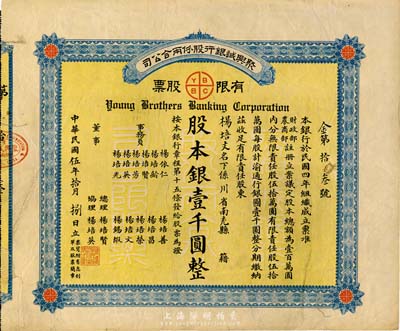 司公合兩份股行銀誠興聚
票股 限有
YBBC
Young Brothers Banking Corporation
本銀行於民國四年組織成立業准
財政部
農商部註冊立案議定股本總額為壹百萬圓
內分無限責任股伍拾萬圓有限責任股伍拾
萬圓每股計渝通行銀圓壹千圓整分期繳納
茲收足有限責任股東
楊培文名下係川省南充縣籍
股本銀壹千圓整
按本銀行章程第十五條發給股票為證
事務員
楊依仁
楊培賢
楊培芳
楊培英
楊培光
楊培善
楊培昌
楊培榮
楊培文
楊錫
董事
總理 楊培賢
協理 楊培英
中華民國伍年拾月捌日立
上海阳明拍卖